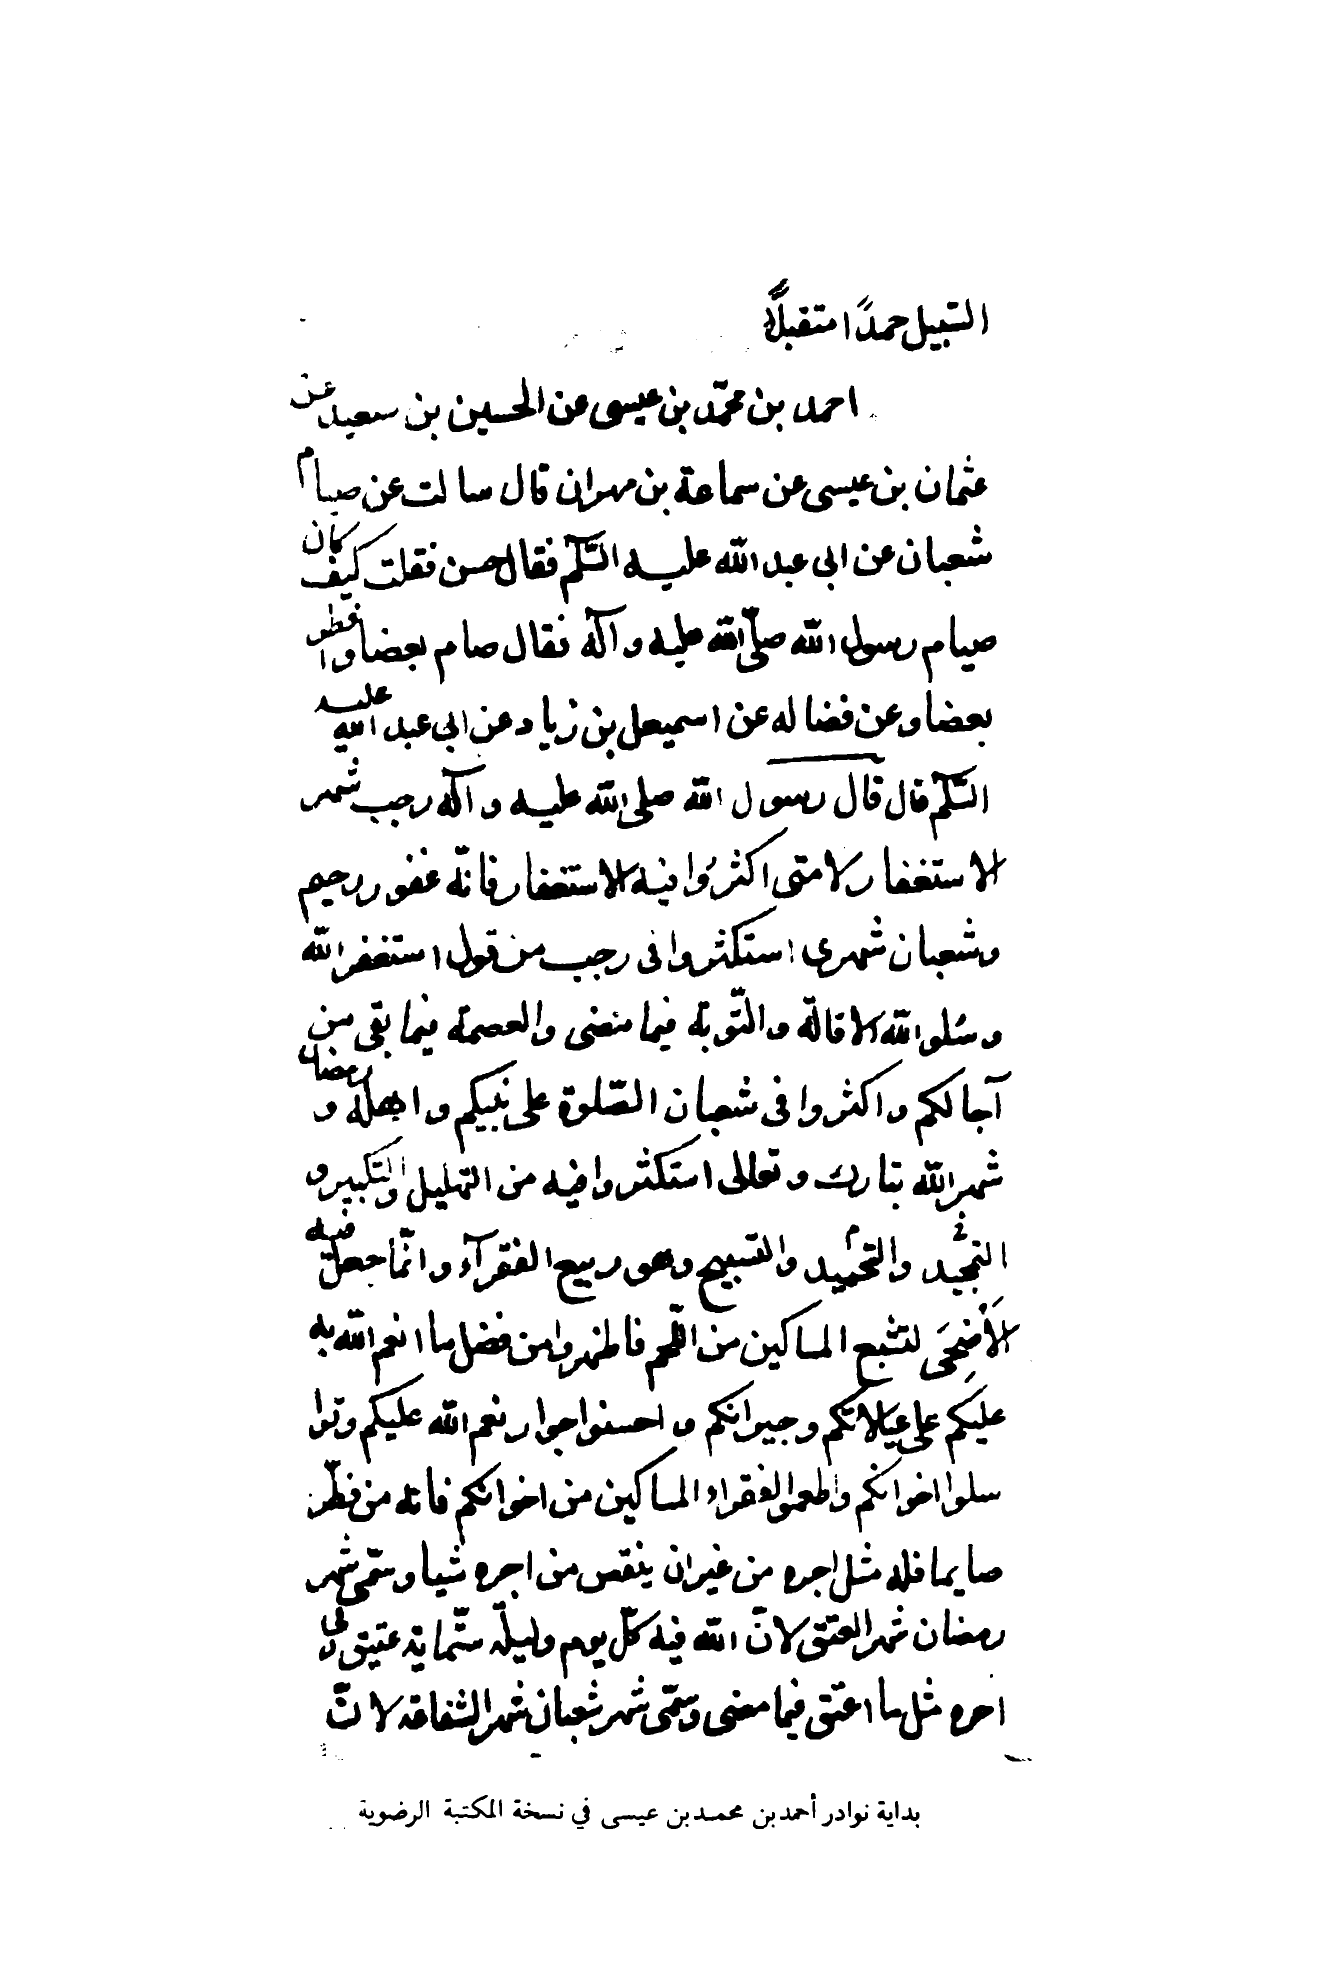 السّبيل حمدًا متقبلًا
احمد بن محمّد بن عيسى عن الحسين بن سعيد عن
عثمان بن عيسى عن سماعة بن مهران قال سالت عن صيام
شعبان عن ابى عبد الله عليه السّلم فقال حسن فقلت كيف كان
صيام رسول الله صلّى الله عليه وآله فقال صام بعضا وافطر
بعضا وعن فضاله عن اسميعل بن زياد عن ابى عبد الله عليه
السّلم قال قال رسول الله صلى الله عليه وآله رجب شهر
الاستغفار لامتى اكثرُوا فيه الاستغفار فانّه غفور رحيم
وشعبان شهرى استكثروا فى رجب من قول استغفر الله
وسُلوا الله الاقالة والتّوبة فيما مضى والعصمة فيما بقى من
آجالكم واكثروا فى شعبان الصّلوة على نبيكم واهله و رمضان
شهر الله تبارك وتعالى استكثروا فيه من التهليل والتكبير و
التمجيد والتحميد والتسبيح وهو ربيع الفقرآء وانّما جعل فيه
الأَضحَى لتشبع المساكين من اللّحم فاظهروا من فضل ما انعم الله به
عليكم على عيالاتكم وجيرانكم واحسنوا جوار نعم الله عليكم وتوا
سلوا اخوانكم واطعموا الفقراء المساكين من اخوانكم فانه من فطّر
صايما فله مثل اجره من غير ان ينقص من اجره شيا وسمّى شهر
رمضان شهر العتق لانّ الله فيه كلّ يوم وليلة ستّماية عتيق وفى
اخره مثل ما اعتق فيما مضى وسمّى شهر شعبان شهر الشفاعة لانّ
بداية نوادر أحمد بن محمد بن عيسى في نسخة المكتبة الرضوية